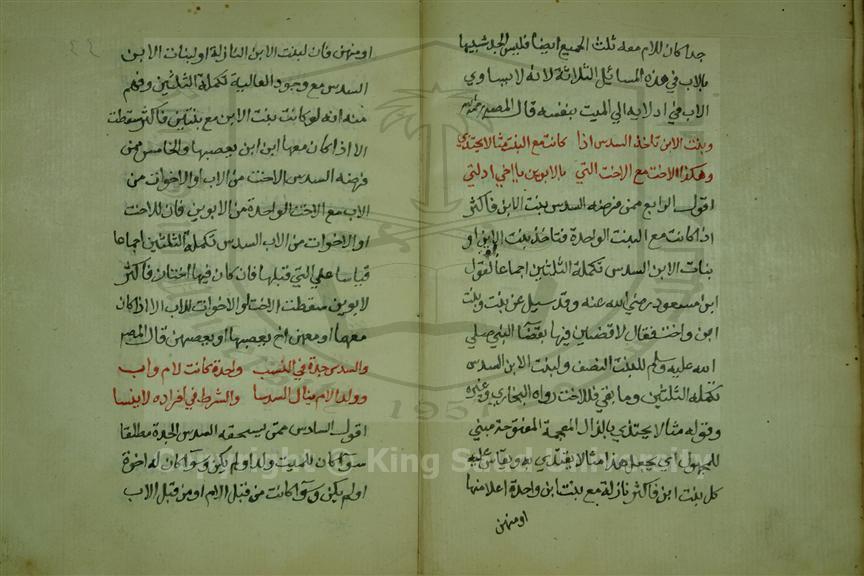 جدا كان للام معه ثلث الجميع ايضا فليس الجد شبيها
بالاب في هذه المسائل الثلاثة لانه لا يساوي
الاب في ادلايه الي الميت بنفسه قال المصنف رحمه الله
وبنت الابن تاخذ السدس اذا كانت مع البنت مثالا يحتذي
وهكذا الاخت مع الاخت التي بالابوين يا اخي ادلتي
اقول الرابع ممن فرضه السدس بنت الابن فاكثر
اذا كانت مع البنت الواحدة فتاخذ بنت الابن او
بنات الابن السدس تكملة الثلثين اجماعا لقول
ابن مسعود رضي الله عنه وقد سيل عن بنت وبنت
ابن واخت فقال لاقضين فيها بقضا النبي صلي
الله عليه وسلم للبنت النصف ولبنت الابن السدس
تكملة الثلثين وما بقي فللاخت رواه البخاري وغيره
وقوله مثالا يحتذي بالذال المعجمة المفتوحة مبني
للمجهول اي يجعل هذا مثالا يقتدي به ويقاس عليه
كل بنت ابن فاكثر نازلة مع بنت ابن واحدة اعلا منها
او منهن
او منهن فان لبنت الابن النازلة او لبنات الابن
السدس مع وجود العالية تكملة الثلثين وفهم
منه انه لو كانت بنت الابن مع بنتين فاكثر سقطت
الا اذا كان معها ابن ابن يعصبها والخامس ممن
فرضه السدس الاخت من الاب او الاخوات من
الاب مع الاخت الواحدة من الابوين فان للاخت
او الاخوات من الاب السدس تكملة الثلثين اجماعا
قياسا علي التي قبلها فان كان فيها اختان فاكثر
لابوين سقطت الاخت او الاخوات للاب الا اذا كان
معها او معهن اخ يعصبها او يعصبهن قال المصنف
والسدس جدة في النسب واحدة كانت لام واب
وولد الام ينال السدسا والشرط في افراده لا ينسا
اقول السادس ممن يستحقه السدس الجدة مطلقا
سوا كان للميت ولد او لم يكن وسوا كان له اخوة
او لم يكن وسوا كانت من قبل الام او من قبل الاب
Copyright © King Saud University
1957